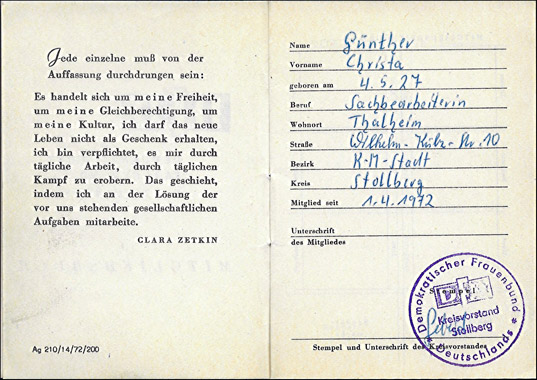 Jede einzelne muß von der
Auffassung durchdrungen sein:
Es handelt sich um meine Freiheit,
um meine Gleichberechtigung, um
meine Kultur, ich darf das neue
Leben nicht als Geschenk erhalten,
ich bin verpflichtet, es mir durch
tägliche Arbeit, durch täglichen
Kampf zu erobern. Das geschieht,
indem ich an der Lösung der
vor uns stehenden gesellschaftlichen
Aufgaben mitarbeite.
CLARA ZETKIN
Ag 210/14/72/200
Name Günther
Vorname Christa
geboren am 4. 5. 27
Beruf Sachbearbeiterin
Wohnort Thalheim
Straße Wilhelm-Külz-Str. 10
Bezirk K-M-Stadt
Kreis Stollberg
Mitglied seit 1. 4. 1972
Unterschrift
des Mitgliedes
Stempel
Demokratischer Frauenbund
Deutschlands
DFD
Kreisvorstand
Stollberg
Stempel und Unterschrift des Kreisvorstandes